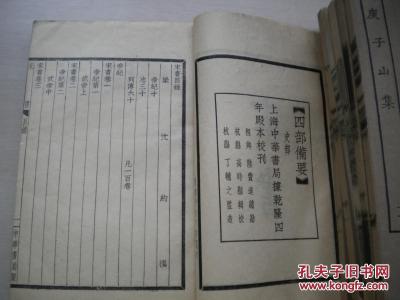 庾子山集
【四部備要】
史部
上海中華書局據乾隆四
年殿本校刊
桐鄉 陸費逵總勘
杭縣 高時顯輯校
杭縣 丁輔之監造
宋書目錄
梁 沈約 撰
帝紀十
志三十
列傳六十
凡一百卷
帝紀
宋書卷一
帝紀第一
武帝上
宋書卷二
帝紀第二
武帝中
宋書卷三
中華書局聚
孔夫子旧书网